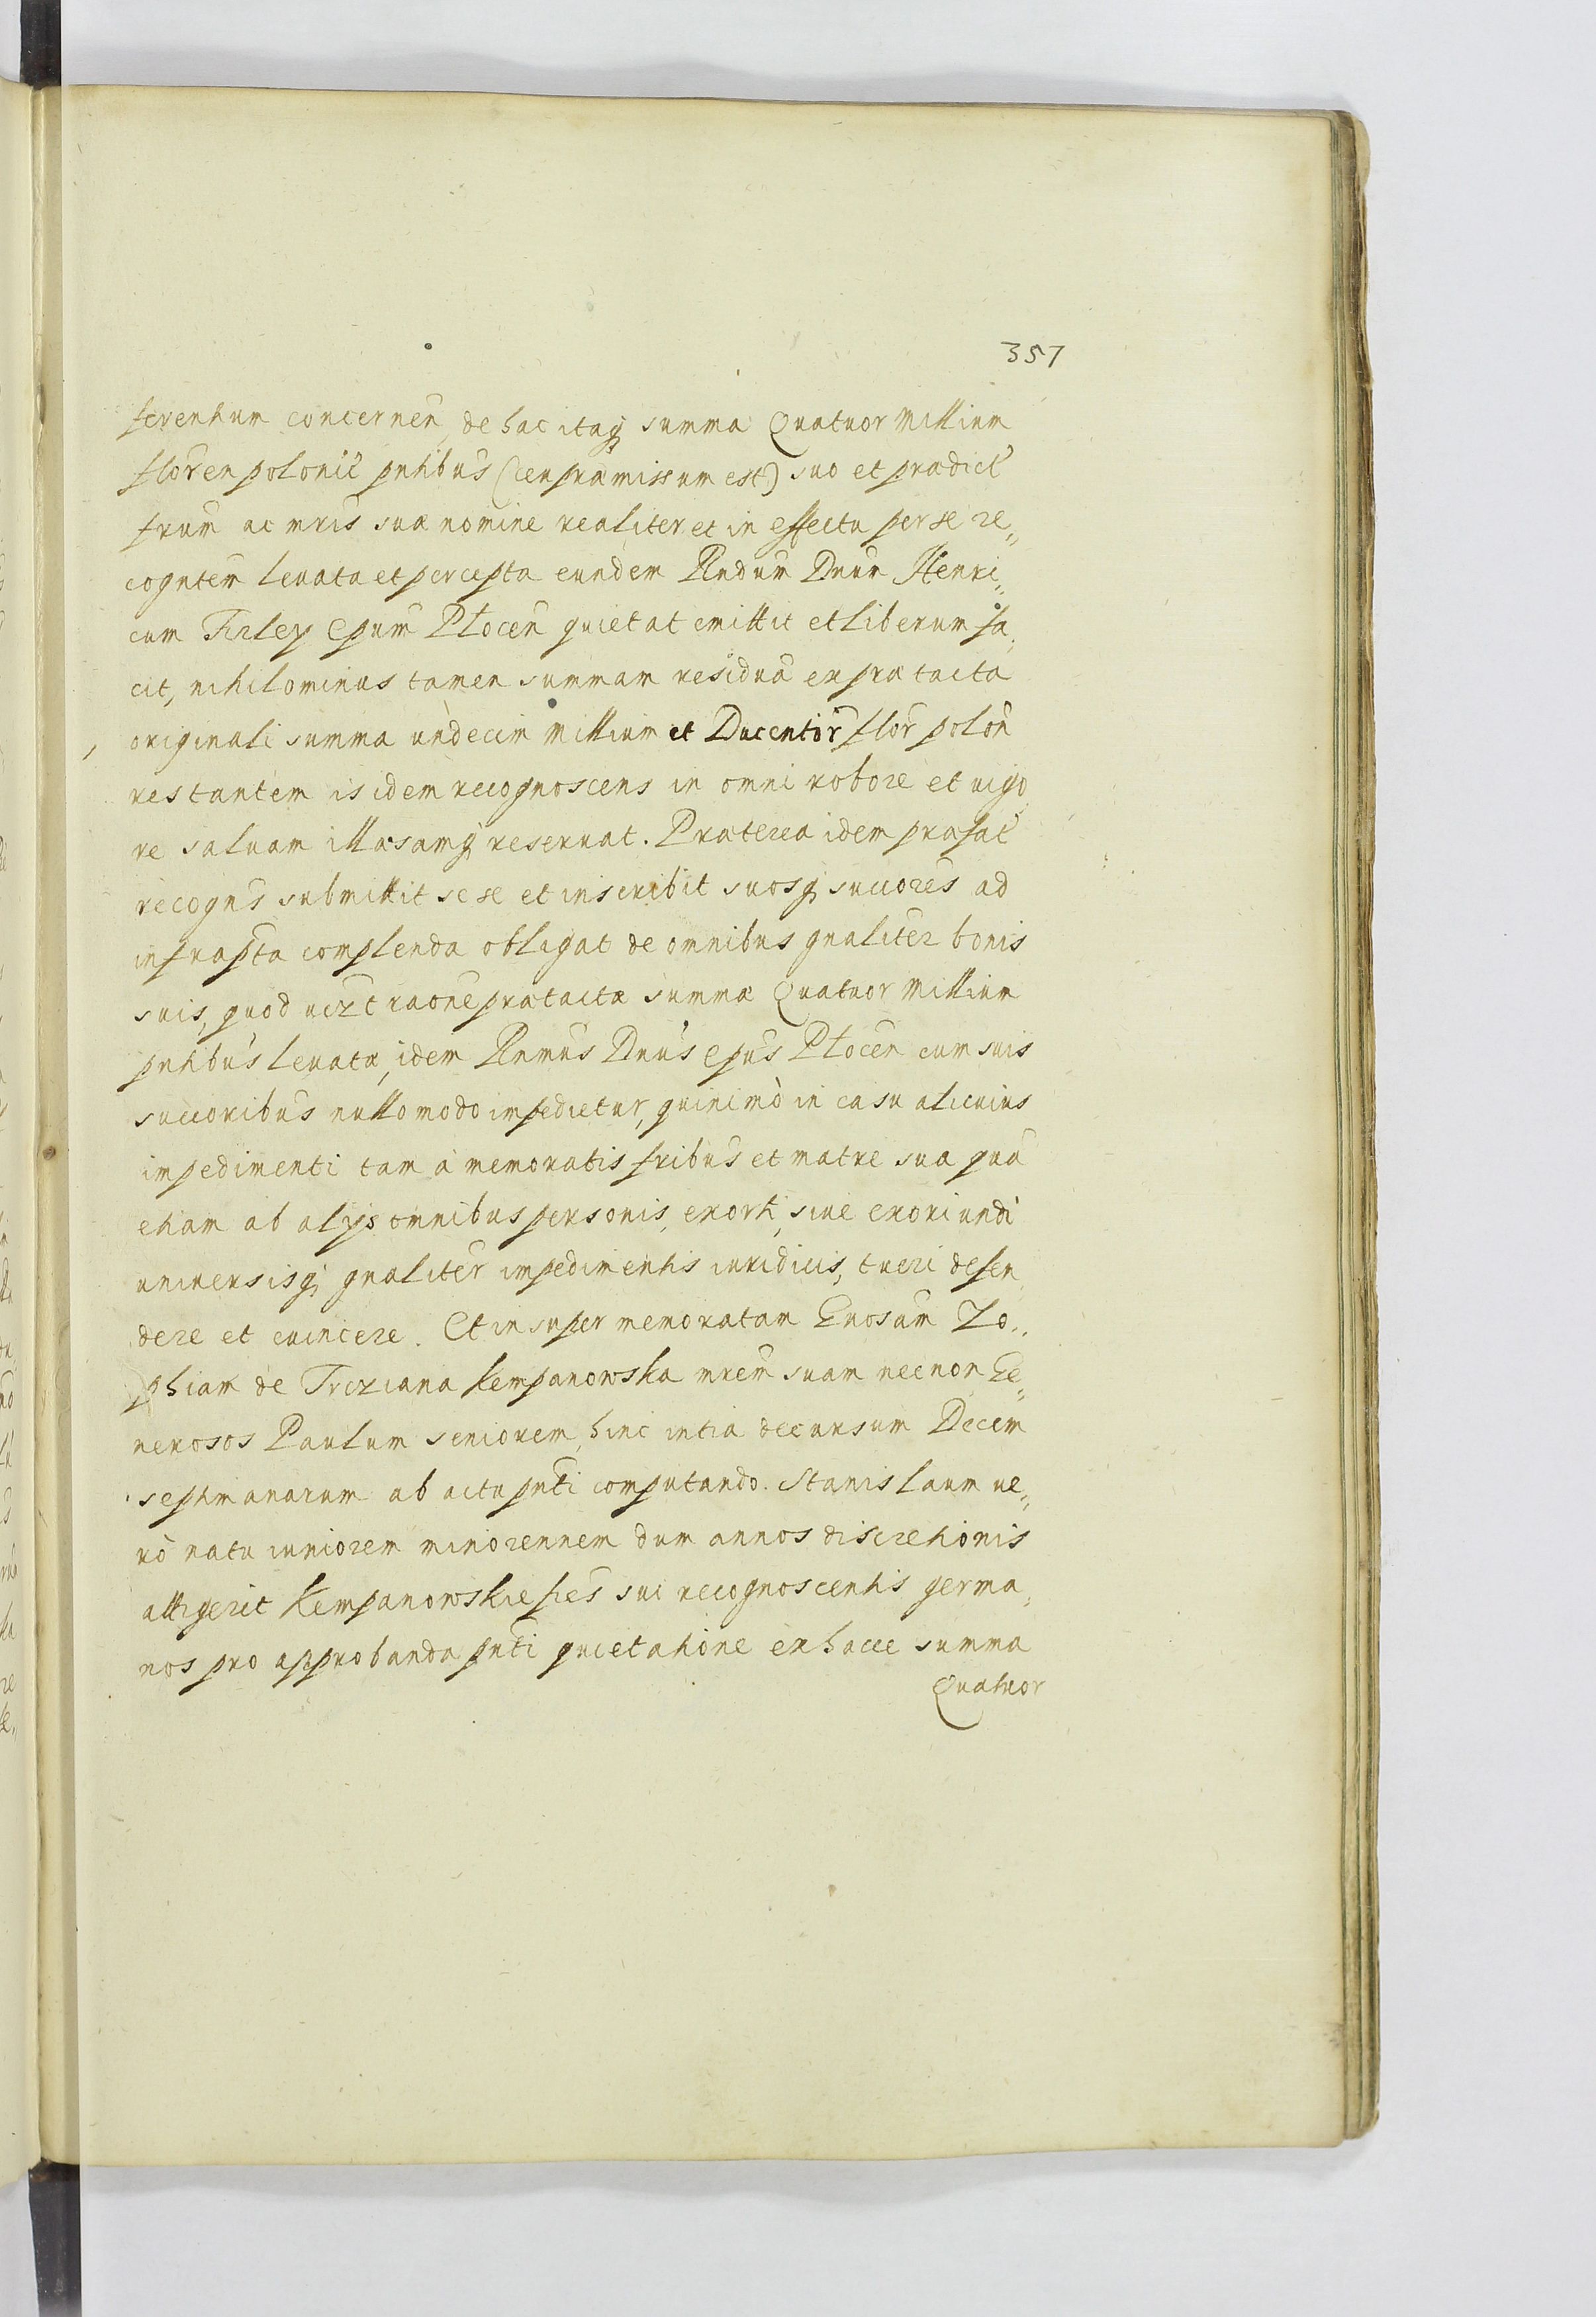 357
ferentium concernen̄, de hac itaq; summa Quatuor Millium
floren polonic̄ pn̄tibus (ceu præmissum est) suo et prædict̄
frūm ac mr̄is suæ nomine realiter et in effectu per se re„
cogn̄tem leuata et percepta eundem Rn̄dum Dnūm Henri„
cum Firley Ep̄um Płocen̄ quietat emittit et liberum fa„
cit, nihilominus tamen summam residuā ex prætacta
originali summa undecim Millium et Ducentor̄ flor̄ polon̄
restantem is idem recognoscens in omni robore et uigo„
re saluam illæsamq; reseruat. Præterea idem præfat̄
recogn̄s submittit sese et inscribit suosq; succōres ad
infrap̄ta complenda obligat de omnibus gn̄aliter bonis
suis, quod uizt rāone prætactæ summæ Quatuor Millium
pn̄tibus leuatæ, idem Rn̄mus Dn̄us Ep̄us Płocen̄ cum suis
succōribus nullo modo impedietur, quinimò in casu alicuius
impedimenti tam à memoratis frībus et matre sua quā
etiam ab alijs omnibus personis, exorti, siue exoriundi
uniuersisq; gn̄aliter impedimentis iuridicis, tueri defen„
dere et euincere. Et insuper memoratam Gn̄osam Zo„
phiam de Trcziana Kempanowska mr̄em suam necnon Ge„
nerosos Paulum seniorem, hinc intra decursum Decem
septimanarum ab actu pn̄ti computando. Stanislaum ue„
rò natu iuniorem minorennem dum annos discretionis
attigerit Kempanowskie fr̄es sui recognoscentis germa„
nos pro approbanda pn̄ti quietatione ex hacce summa
Quatuor